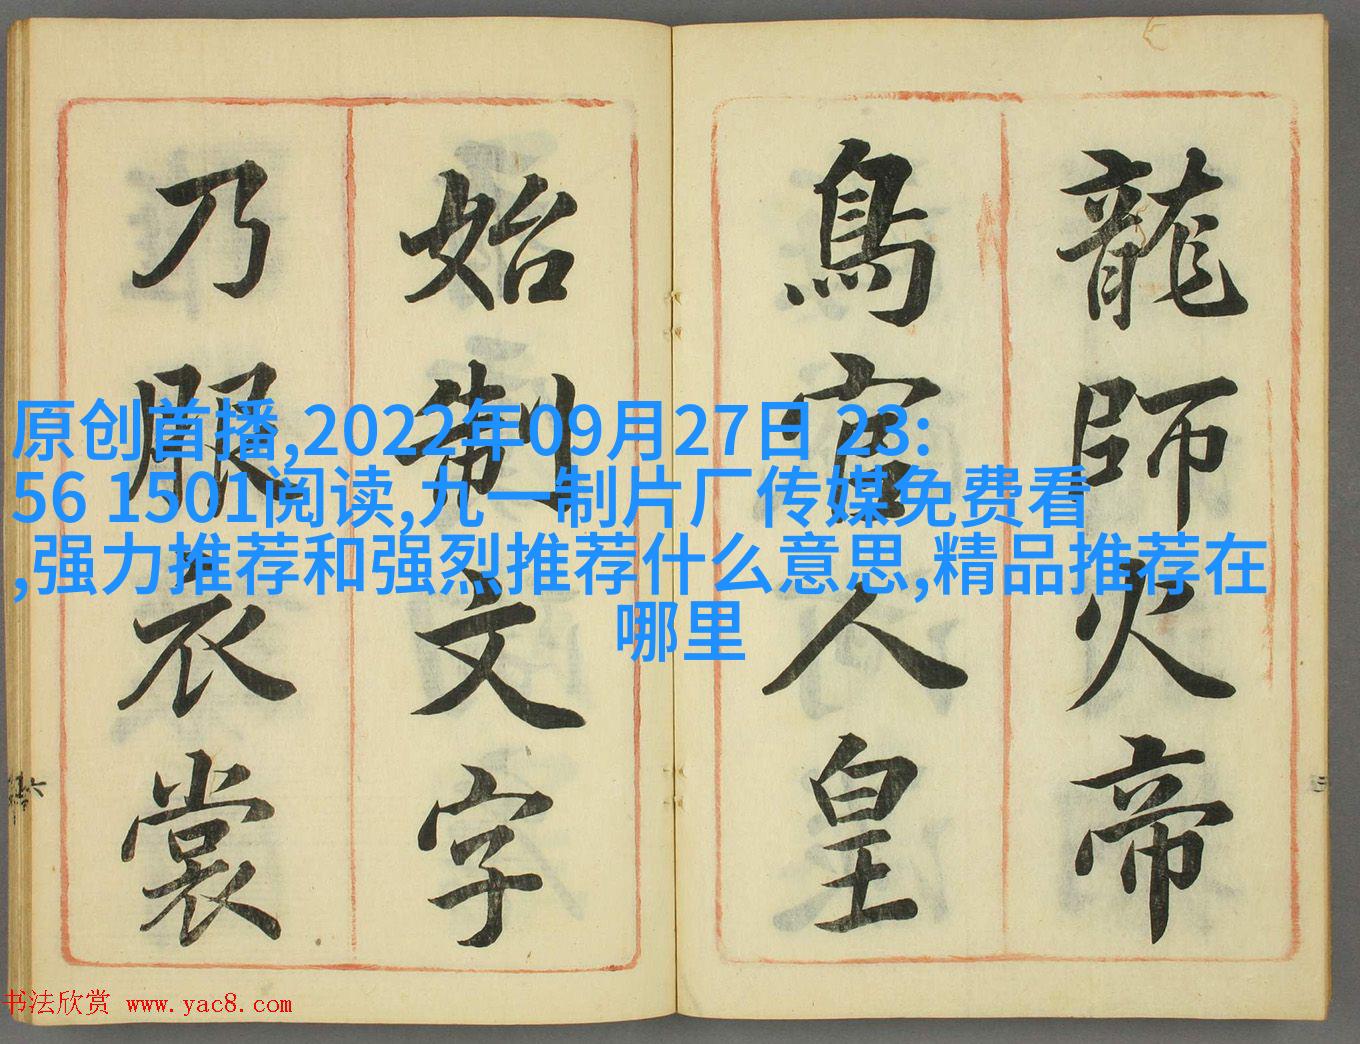 龍師火帝
鳥官人皇
始制文字
乃服衣裳
原创首播,2022年09月27日 23:
56 1501阅读,九一制片厂传媒免费看
,强力推荐和强烈推荐什么意思,精品推荐在
哪里
书法欣赏 www.yac8.com